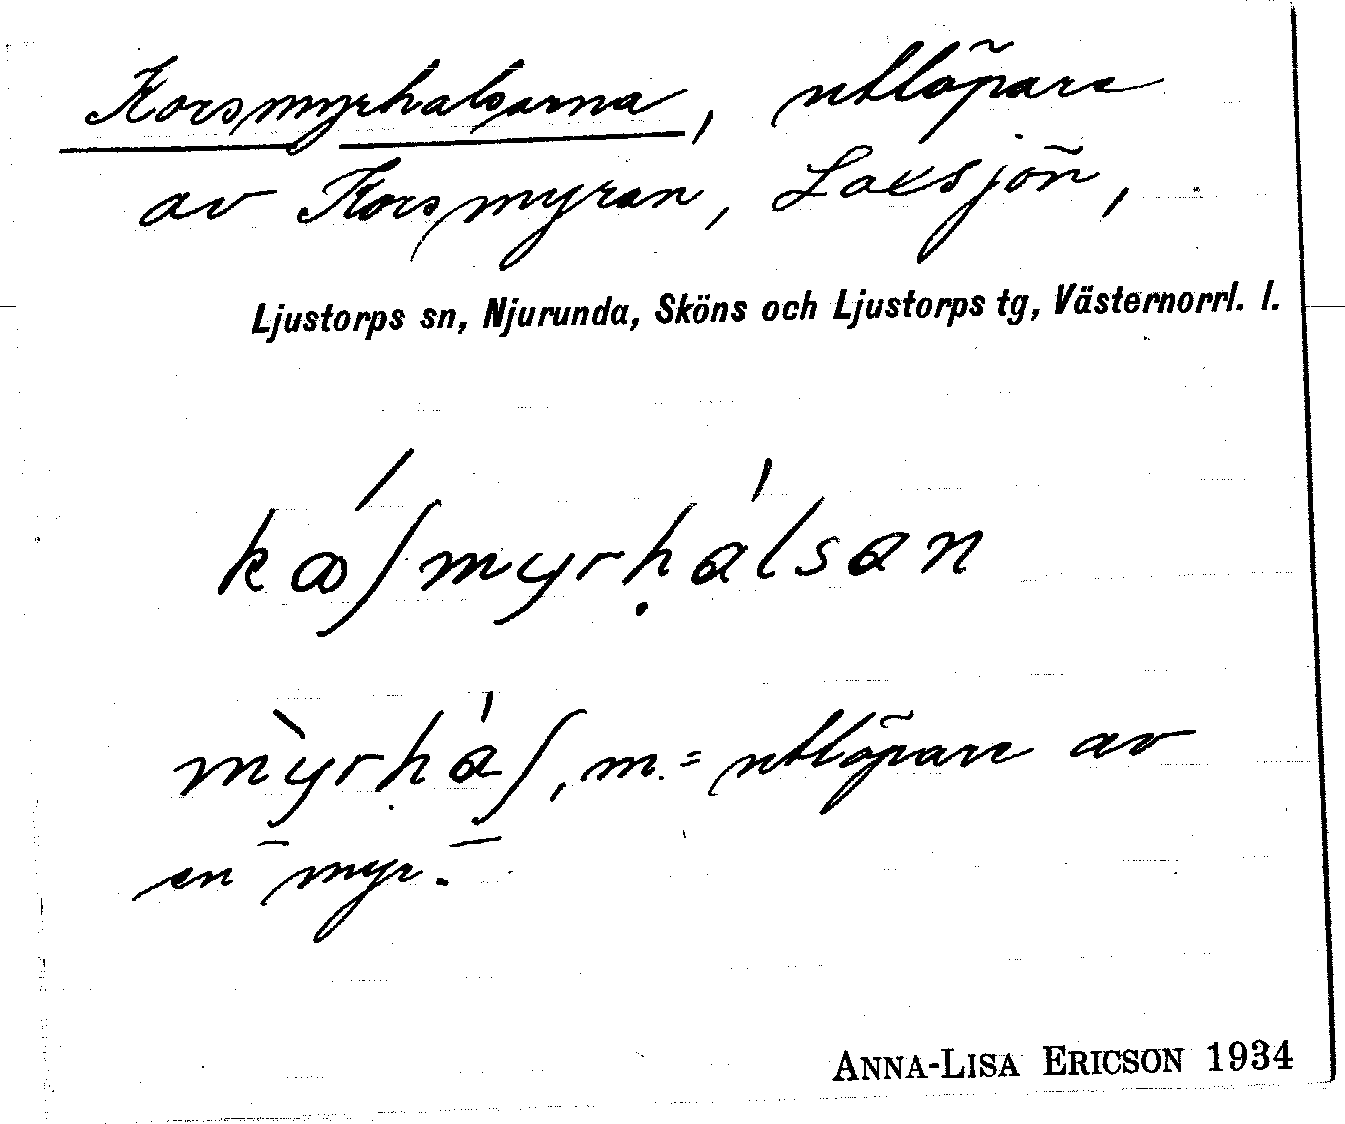 Korsmyrhalsarna, utlöpare
av Korsmyran, Laxsjön,
Ljustorps sn, Njurunda, Sköns och Ljustorps tg, Västernorrl. l.
kɷ́ʃmyrḥálsan
mỳrḥáʃ, m. = utlöpare av
en myr.
ANNA-LISA ERICSON 1934